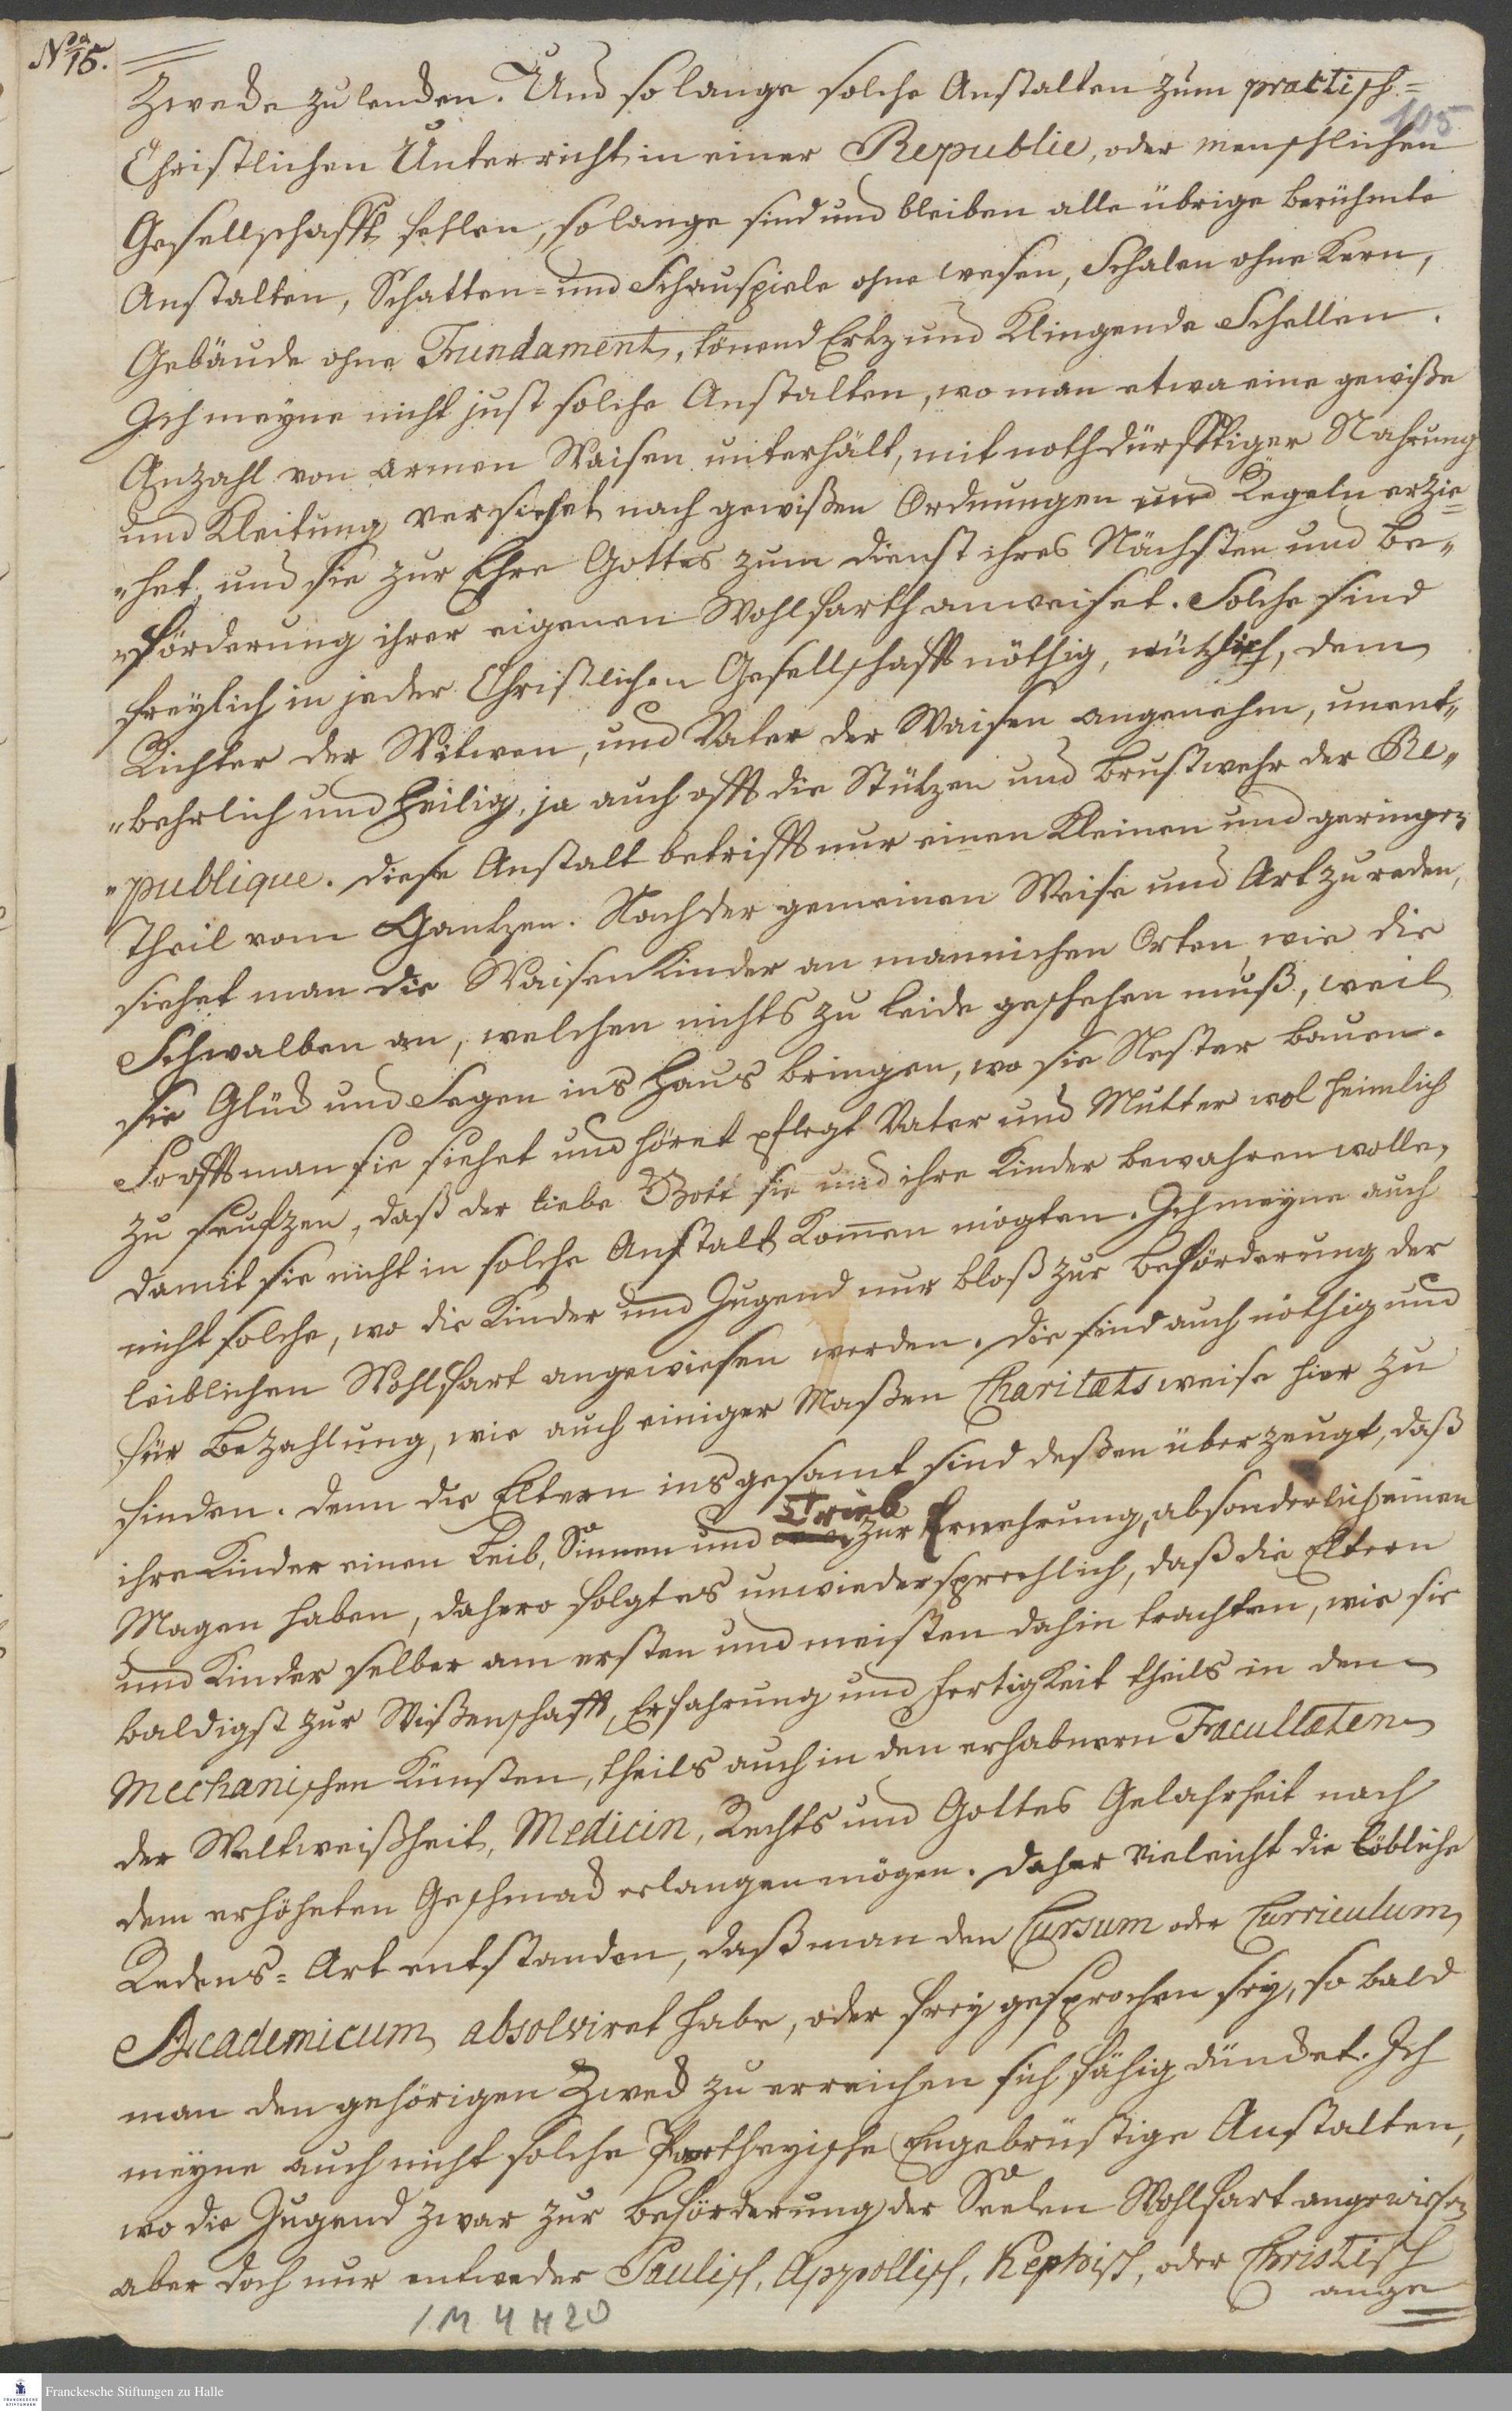 No. 15.
105
Zwecke zu lencken. Und so lange solche Anstalten zum practisch=
Christlichen Unterricht in einer Republic, oder menschlichen
Gesellschafft fehlen, so lange sind und bleiben alle übrige berühmte
Anstalten, Schatten= und Schauspiele ohne wesen, Schalen ohne Kern,
Gebäude ohne Fundament, tönend Ertz und Klingende Schellen.
Ich meyne nicht just solche Anstalten, wo man etwa eine gewiße
Anzahl von armen Waisen unterhält, mit nothdürfftiger Nahrung
und Kleitung versiehet nach gewißen Ordnungen und Regeln erzie=
"het, und sie zur Ehre Gottes zum dienst ihres Nächsten und Be"
"förderung ihrer eigenen Wohlfarth anweiset. Solche sind
freylich in jeder Christlichen Gesellschafft nöthig, nützlich, dem
Richter der Witwen, und Vater der Waisen angenehm, unent"
"behrlich und heilig, ja auch offt die Stützen und Brustwehr der Re"
"publique. diese Anstalt betrifft nur einen Kleinen und geringen
Theil vom Gantzen. Nach der gemeinen Weise und Art zu reden,
siehet man die Waisen Kinder an mannichen Orten, wie die
Schwalben an, welchen nichts zu leide geschehen muß, weil
sie Glück und Segen ins Haus bringen, wo sie Nester bauen.
So offt man sie siehet und höret pflegt Vater und Mutter wol heimlich
zu seufzen, daß der liebe Gott sie und ihre Kinder bewahren wolle,
damit sie nicht in solche Anstalt Komen mögten. Ich meyne auch
nicht solche, wo die Kinder und Jugend nur bloß zur Beförderung der
leiblichen Wohlfart angewiesen werden. die sind auch nöthig und
für Bezahlung, wie auch einiger Maßen Charitætsweise hier zu
finden. denn die Eltern ins gesamt sind deßen überzeugt, daß
ihre Kinder einen Leib, Sinnen und Trieb zur Ernehrung, absonderlich einen
Magen haben, dahero folgt es unwiedersprechlich, daß die Eltern
und Kinder selber am ersten und meisten dahin trachten, wie sie
baldigst zur Wißenschafft, Erfahrung und Fertigkeit theils in den
Mechanischen Künsten, theils auch in den erhabnern Facultæten
der Weltweißheit, Medicin, Rechts und Gottes Gelahrheit nach
dem erhöheten Geschmack erlangen mögen. Daher vieleicht die löbliche
Redens=Art entstanden, daß man den Cursum oder Curriculum
Academicum absolviret habe, oder frey gesprochen sey, so bald
man den gehörigen Zweck zu erreichen sich fähig düncket. Ich
meyne auch nicht solche Partheyische Engebrüstige Anstalten,
wo die Jugend zwar zur Beförderung der Seelen Wohlfart angewiesen,
aber doch nur entweder Paulisch, Appollisch, Kephisch, oder Christisch
ange
1 M 4 H 20
Franckesche Stiftungen zu Halle